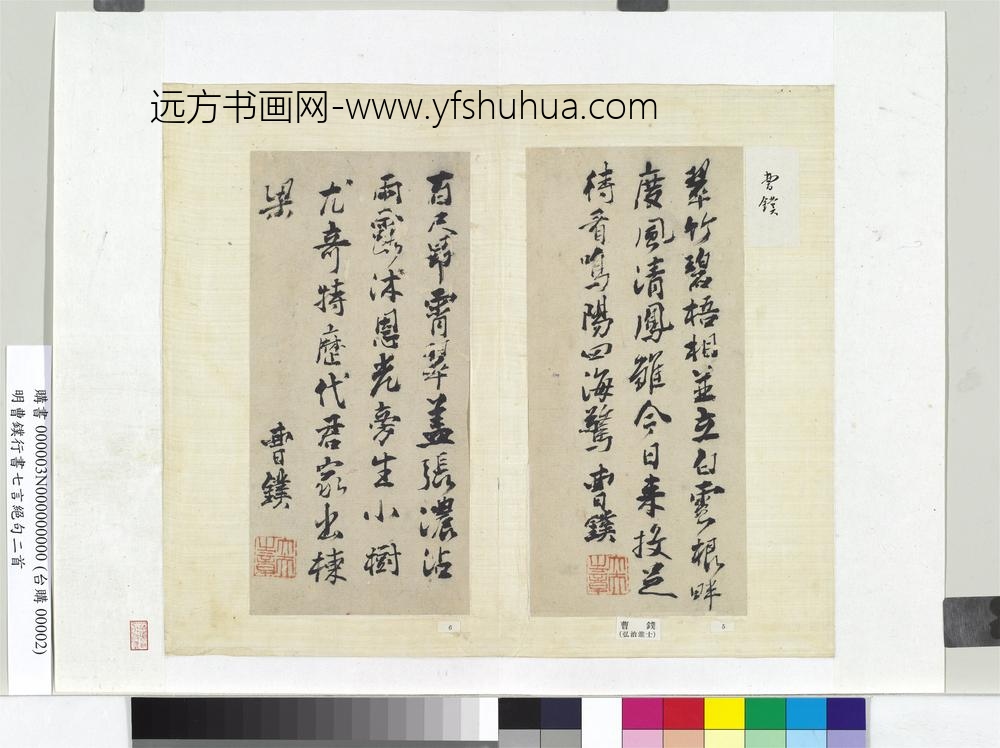 远方书画网-www.yfshuhua.com
曹鏷
翠竹碧梧相並立白雲根畔
度風清鳳雛今日來投足
待看鳴陽四海驚 曹鏷
曹 鏷
(弘治進士)
5
百尺昂霄翠蓋張濃沾
雨露沐恩光旁生小樹
尤奇特歷代君家出棟
梁
曹鏷
6
購書 000003N000000000 (台購 00002)
明曹鏷行書七言絕句二首